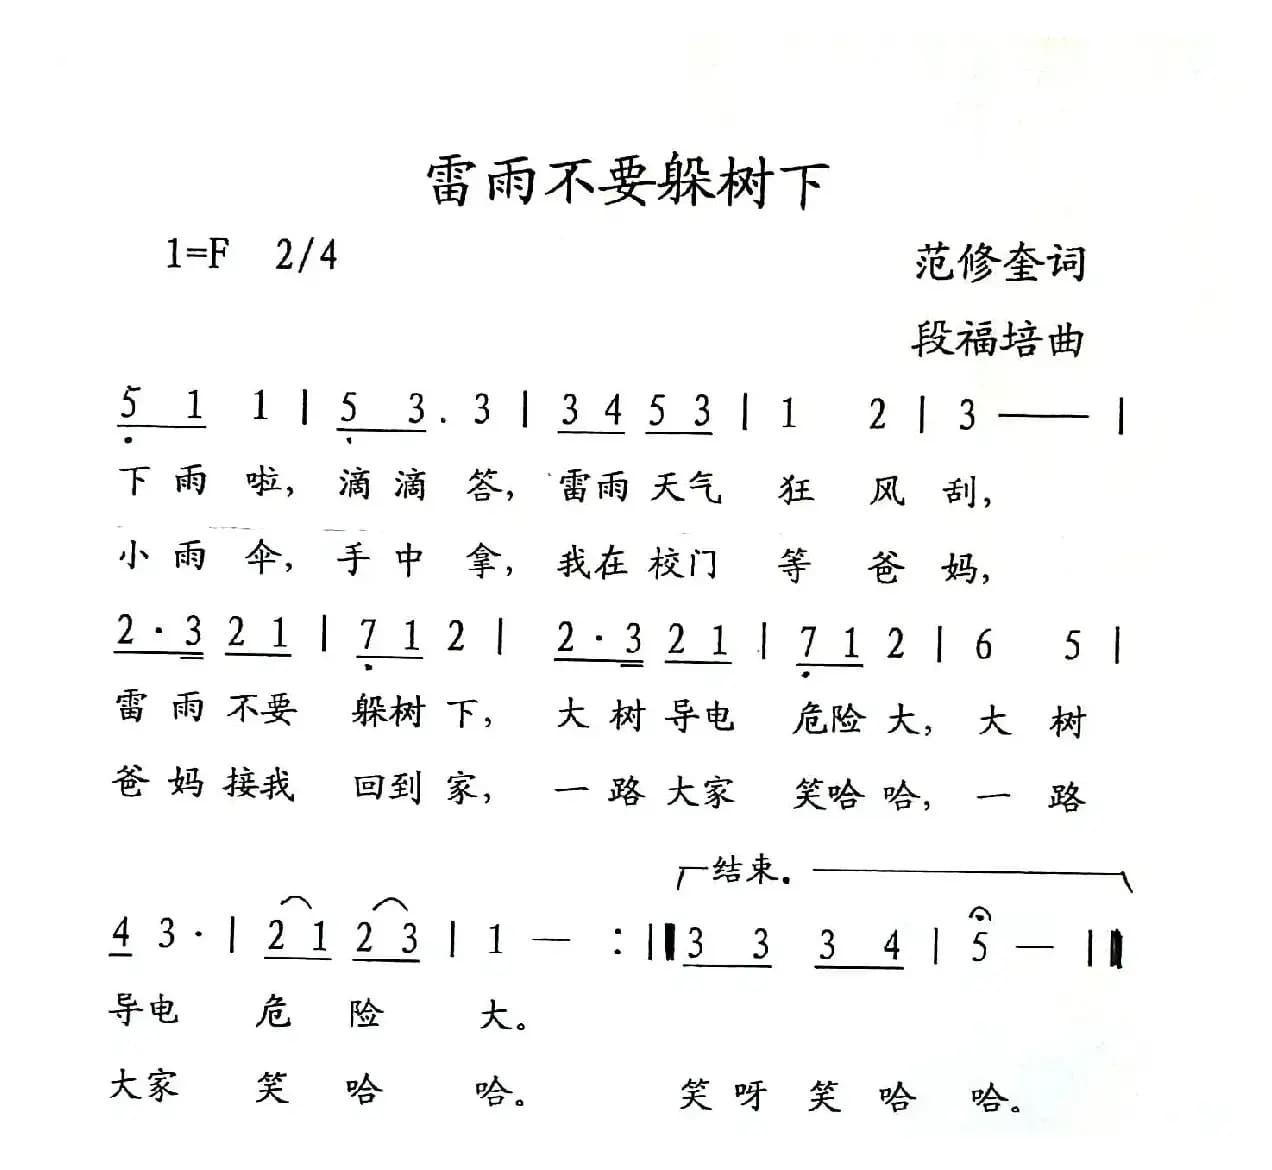 雷雨不要躲树下
1=F 2/4 范修奎词
段福培曲
5 1 1 | 5 3 . 3 | 3 4 5 3 | 1 2 | 3 —— |
下雨啦，滴滴答，雷雨天气狂风刮，
小雨伞，手中拿，我在校门等爸妈，
2 · 3 2 1 | 7 1 2 | 2 · 3 2 1 | 7 1 2 | 6 5 |
雷雨不要躲树下，大树导电危险大，大树
爸妈接我回到家，一路大家笑哈哈，一路
结束.
4 3 · | 2 1 2 3 | 1 — :‖ 3 3 3 4 | 5 — ‖
导电危险大。
大家笑哈哈。笑呀笑哈哈。